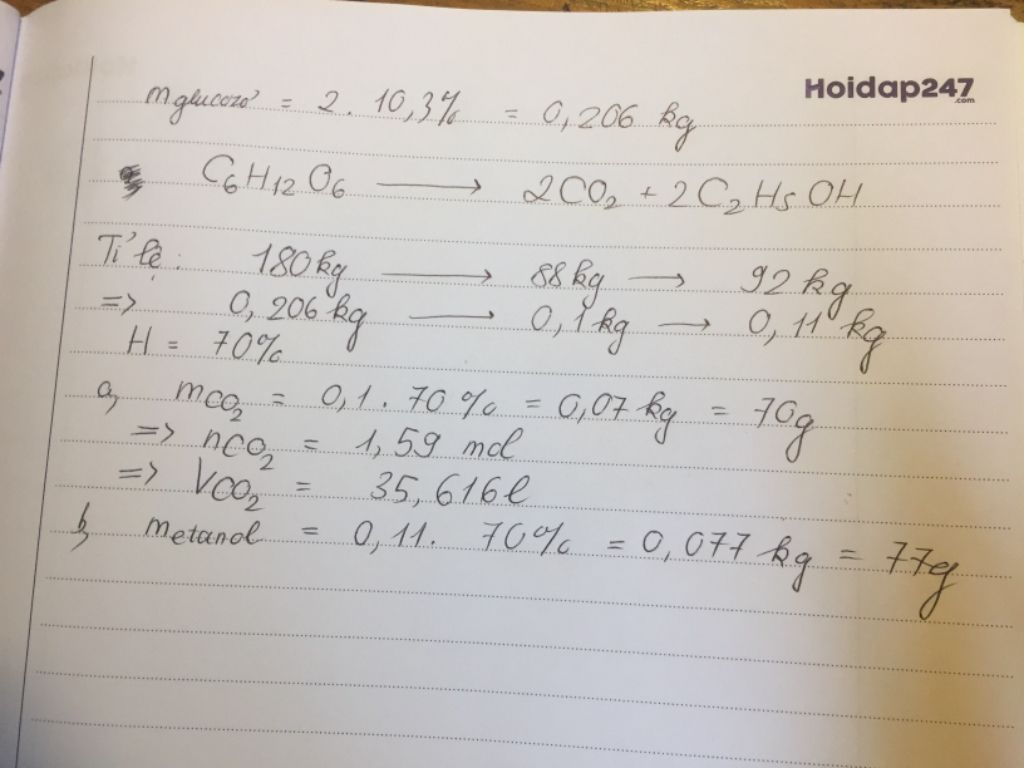 Hoidap247
.com
mglucozơ = 2. 10,3% = 0,206 kg
C6H12O6 ⟶ 2CO2 + 2C2H5OH
Tỉ lệ: 180kg ⟶ 88kg ⟶ 92 kg
=> 0,206kg ⟶ 0,1kg ⟶ 0,11 kg
H = 70%
a, mCO2 = 0,1. 70% = 0,07kg = 70g
=> nCO2 = 1,59 mol
=> VCO2 = 35,616l
b, metanol = 0,11. 70% = 0,077 kg = 77g